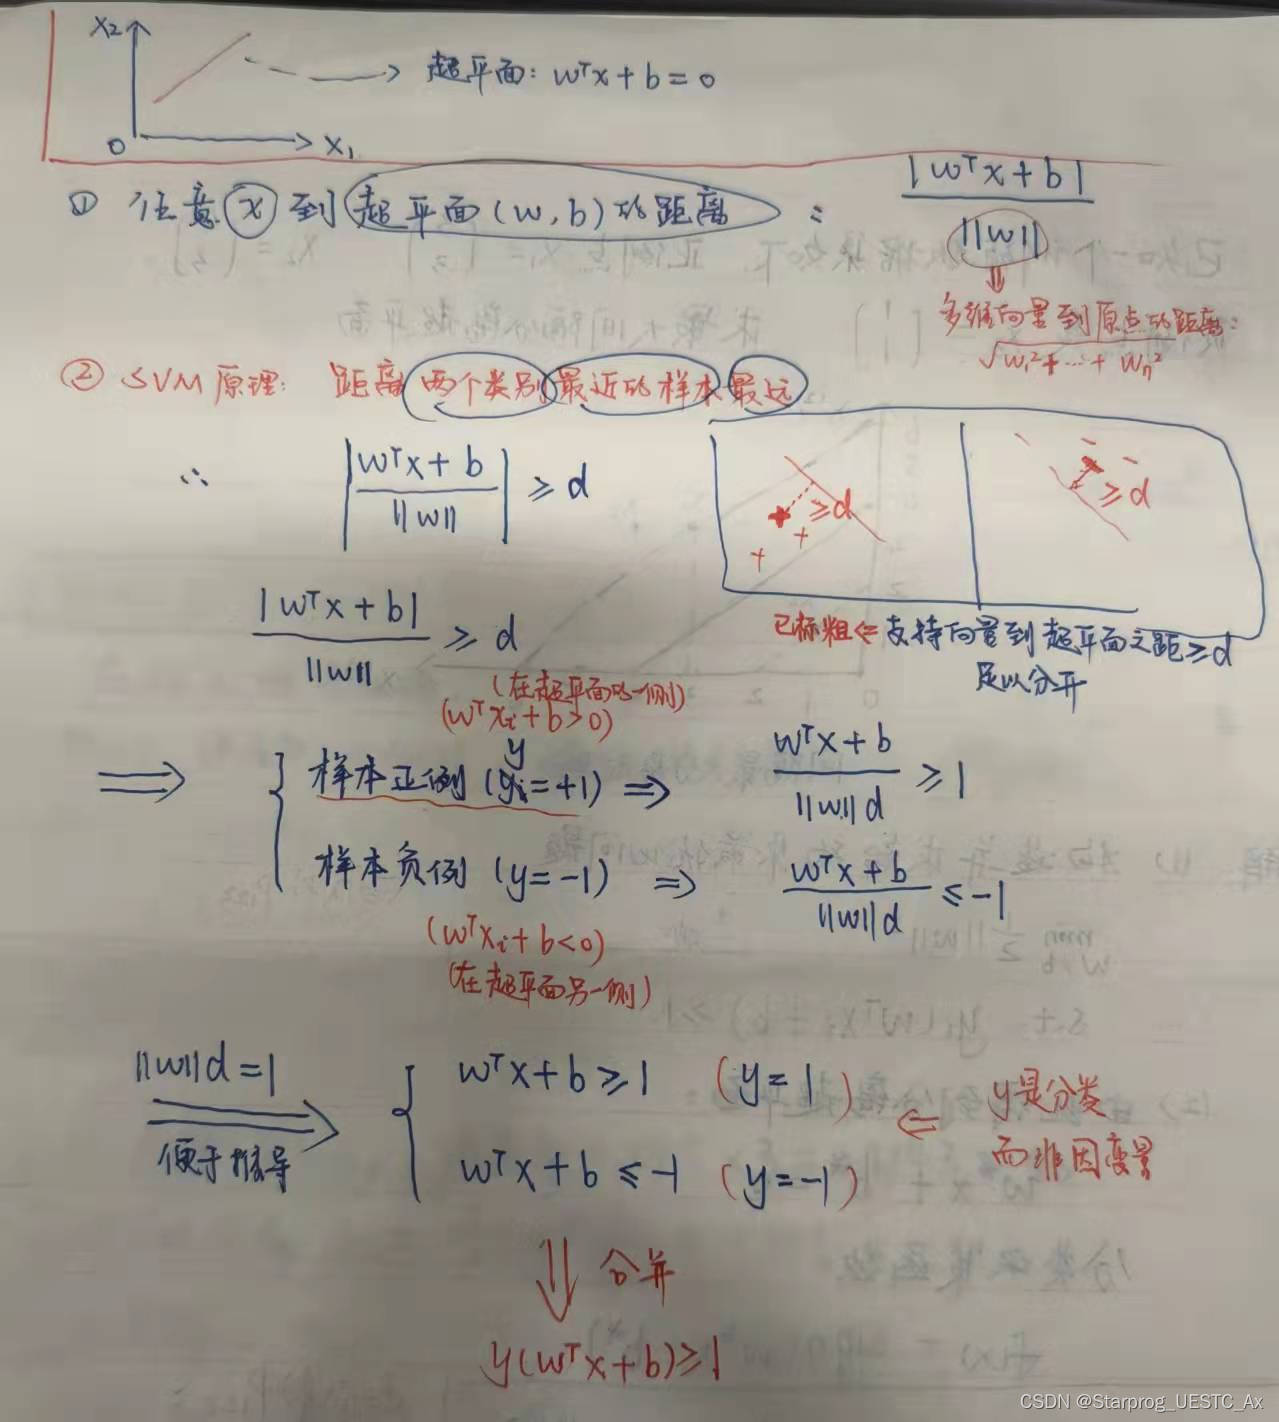 x₂
超平面: wᵀx + b = 0
0 x₁
① 任意 x 到 超平面(w, b) 的距离 : |wᵀx + b| / ||w||
⇓
多维向量到原点的距离:
√w₁² + … + wₙ²
② SVM 原理: 距离 两个类别 最近的样本 最远
∴ |(wᵀx + b) / ||w||| ≥ d
+ + ≥ d
- - ≥ d
|wᵀx + b| / ||w|| ≥ d
已标粗 ⇐ 支持向量到超平面之距 ≥ d
足以分开
(在超平面的一侧)
(wᵀxᵢ + b > 0)
y
⇒ { 样本正例 (yᵢ = +1) ⇒ (wᵀx + b) / (||w|| d) ≥ 1
样本负例 (y = -1) ⇒ (wᵀx + b) / (||w|| d) ≤ -1
(wᵀxᵢ + b < 0)
(在超平面另一侧)
||w|| d = 1
便于推导
⇒ { wᵀx + b ≥ 1 (y = 1)
wᵀx + b ≤ -1 (y = -1)
⇐ y是分类
而非因变量
⇓ 合并
y(wᵀx + b) ≥ 1
CSDN @Starprog_UESTC_Ax